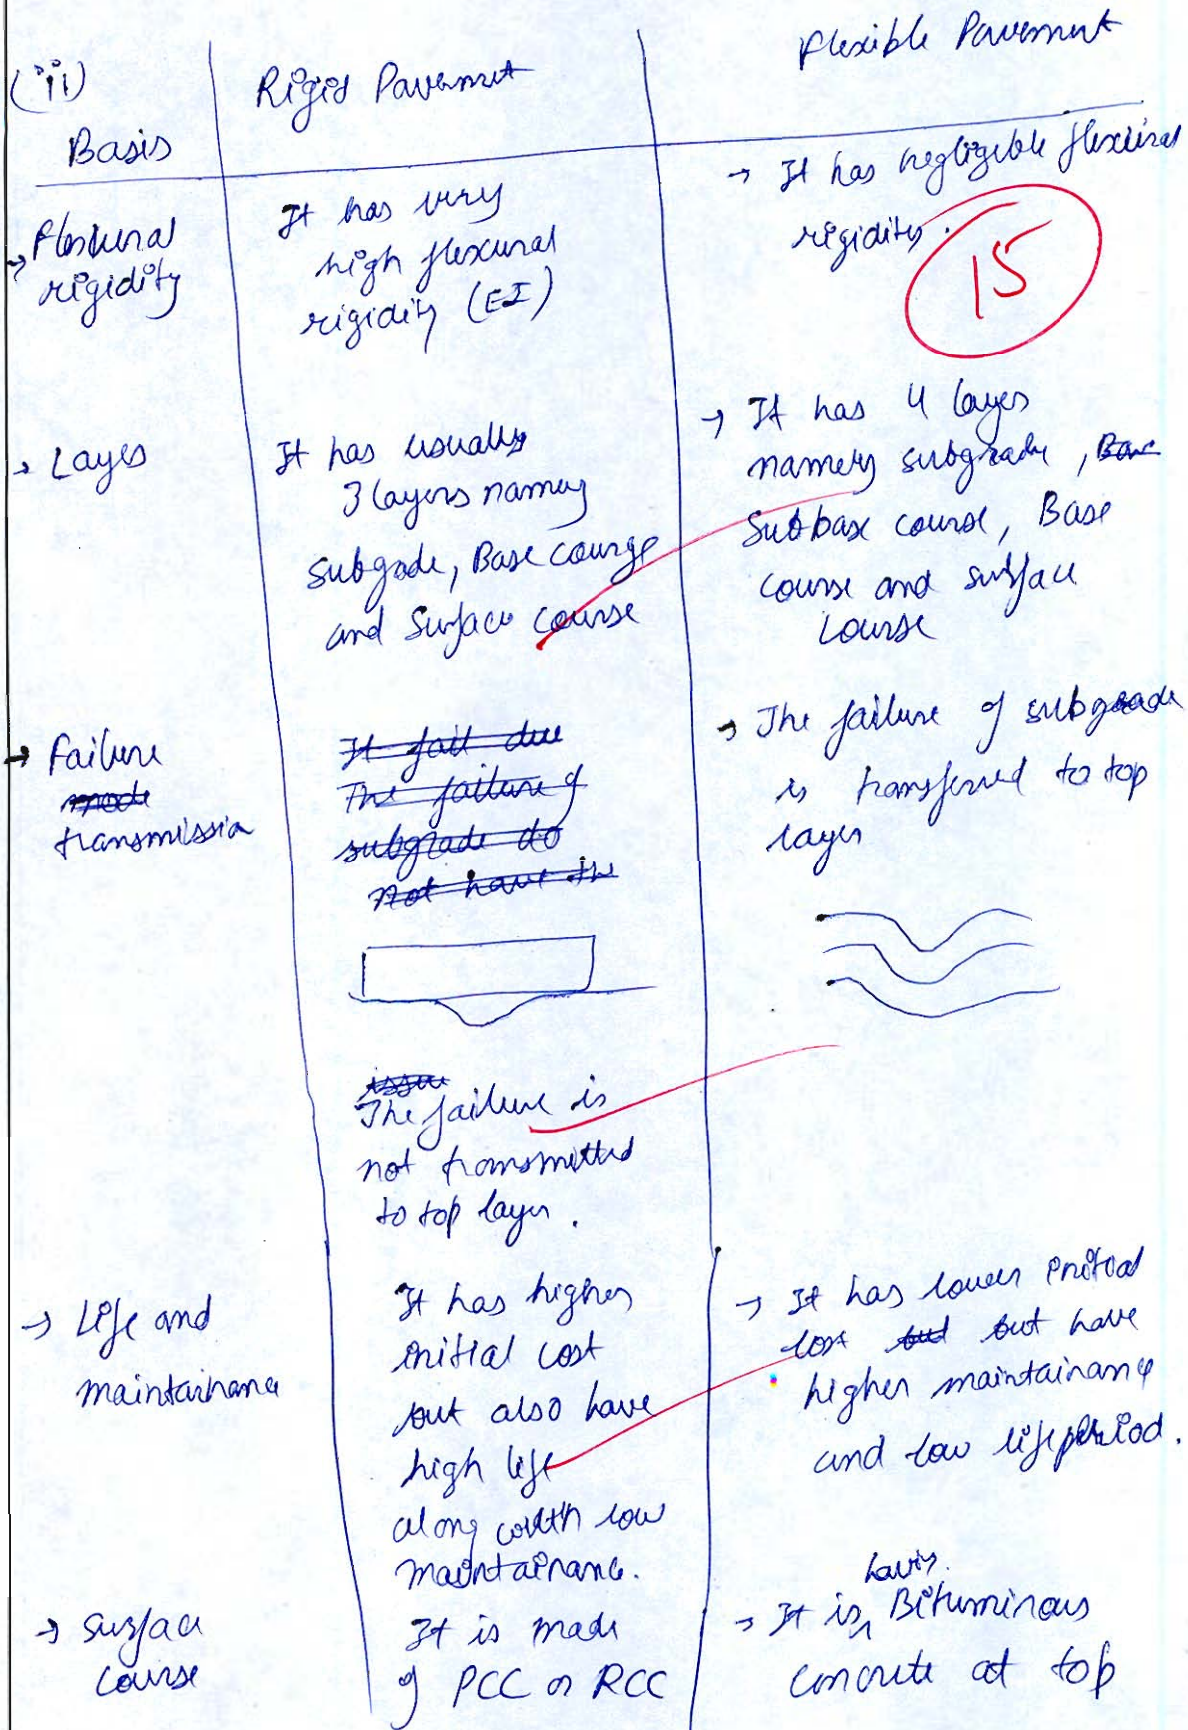 (ii)
Basis
Rigid Pavement
Flexible Pavement
→ Flextural
rigidity
It has very
high flexural
rigidity (EI)
→ It has negligible flexural
rigidity.
15
→ Layes
It has usually
3 layers namely
subgade, Base course
and Surface course
→ It has 4 layers
namely subgrade, Base
Subbase course, Base
course and surface
course
→ Failure
mode
transmission
It fail due
The failure of
subgrade do
not have the
issue
The failure is
not transmitted
to top layer.
→ The failure of subgrade
is transferred to top
layer
→ Life and
maintainance
It has higher
initial cost
but also have
high life
along with low
maintainance.
→ It has lower initial
cost but but have
higher maintainance
and low life period.
→ Surface
course
It is made
of PCC or RCC
→ It is having Bituminous
concrete at top